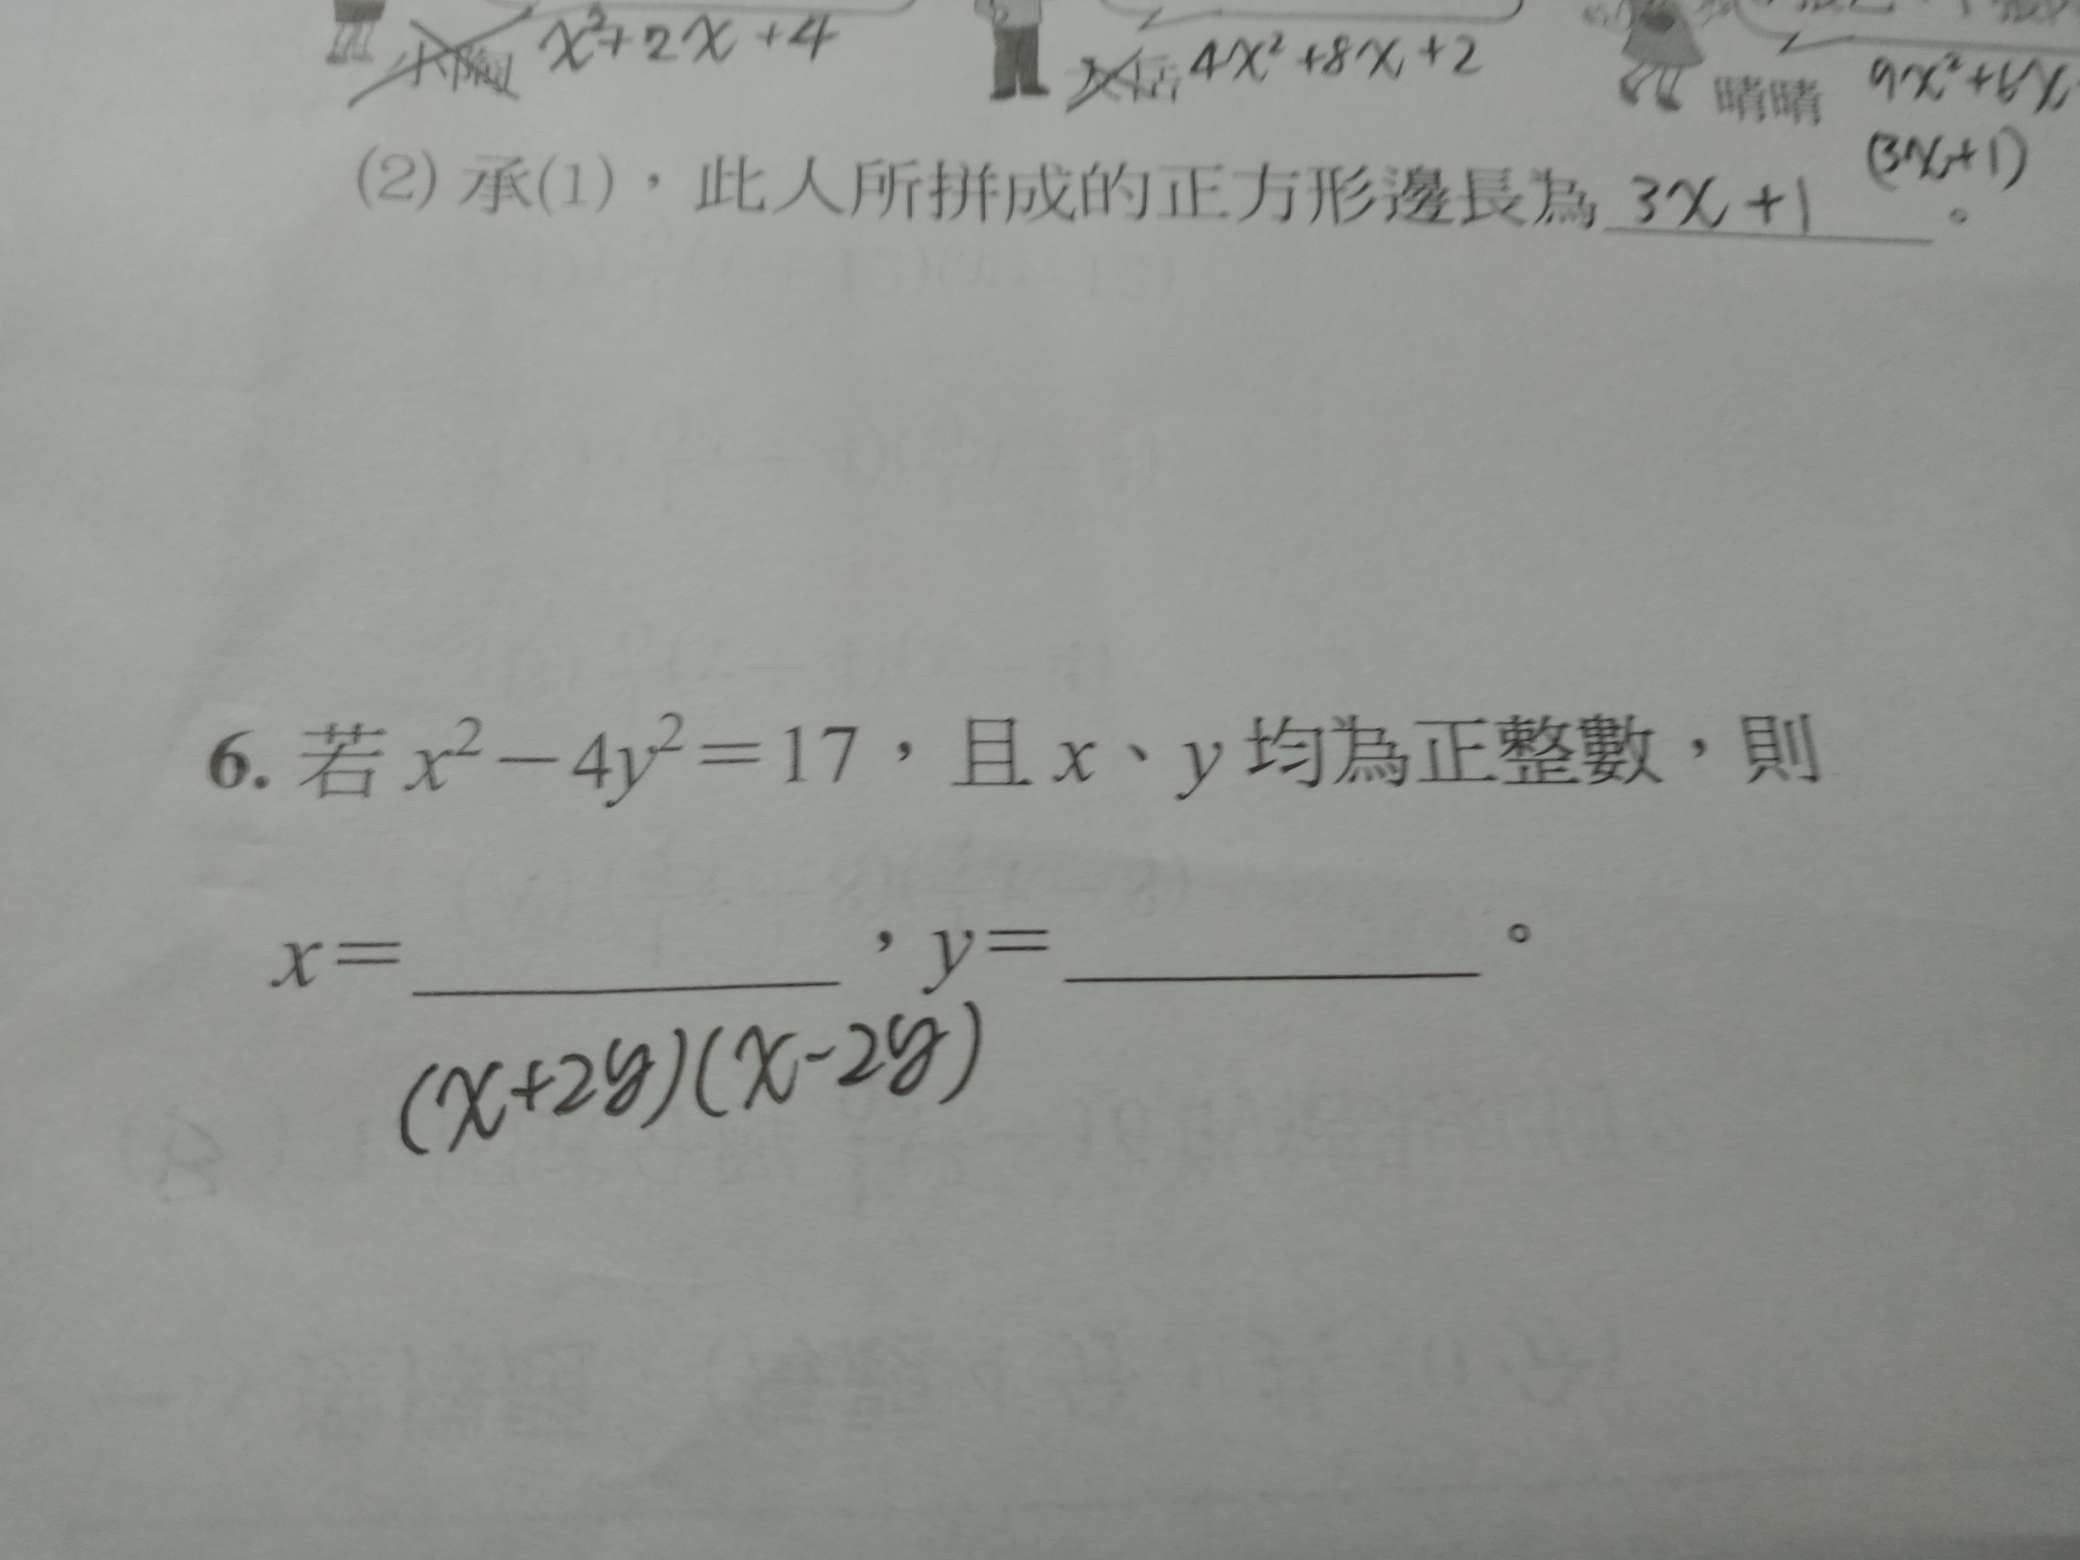 x²+2x+4
4x²+8x+2
晴晴 9x²+6x
(3x+1)
(2) 承(1)，此人所拼成的正方形邊長為 3x+1 。
6. 若 x²－4y²＝17，且 x、y 均為正整數，則
x＝＿＿＿＿，y＝＿＿＿＿。
(x+2y)(x-2y)